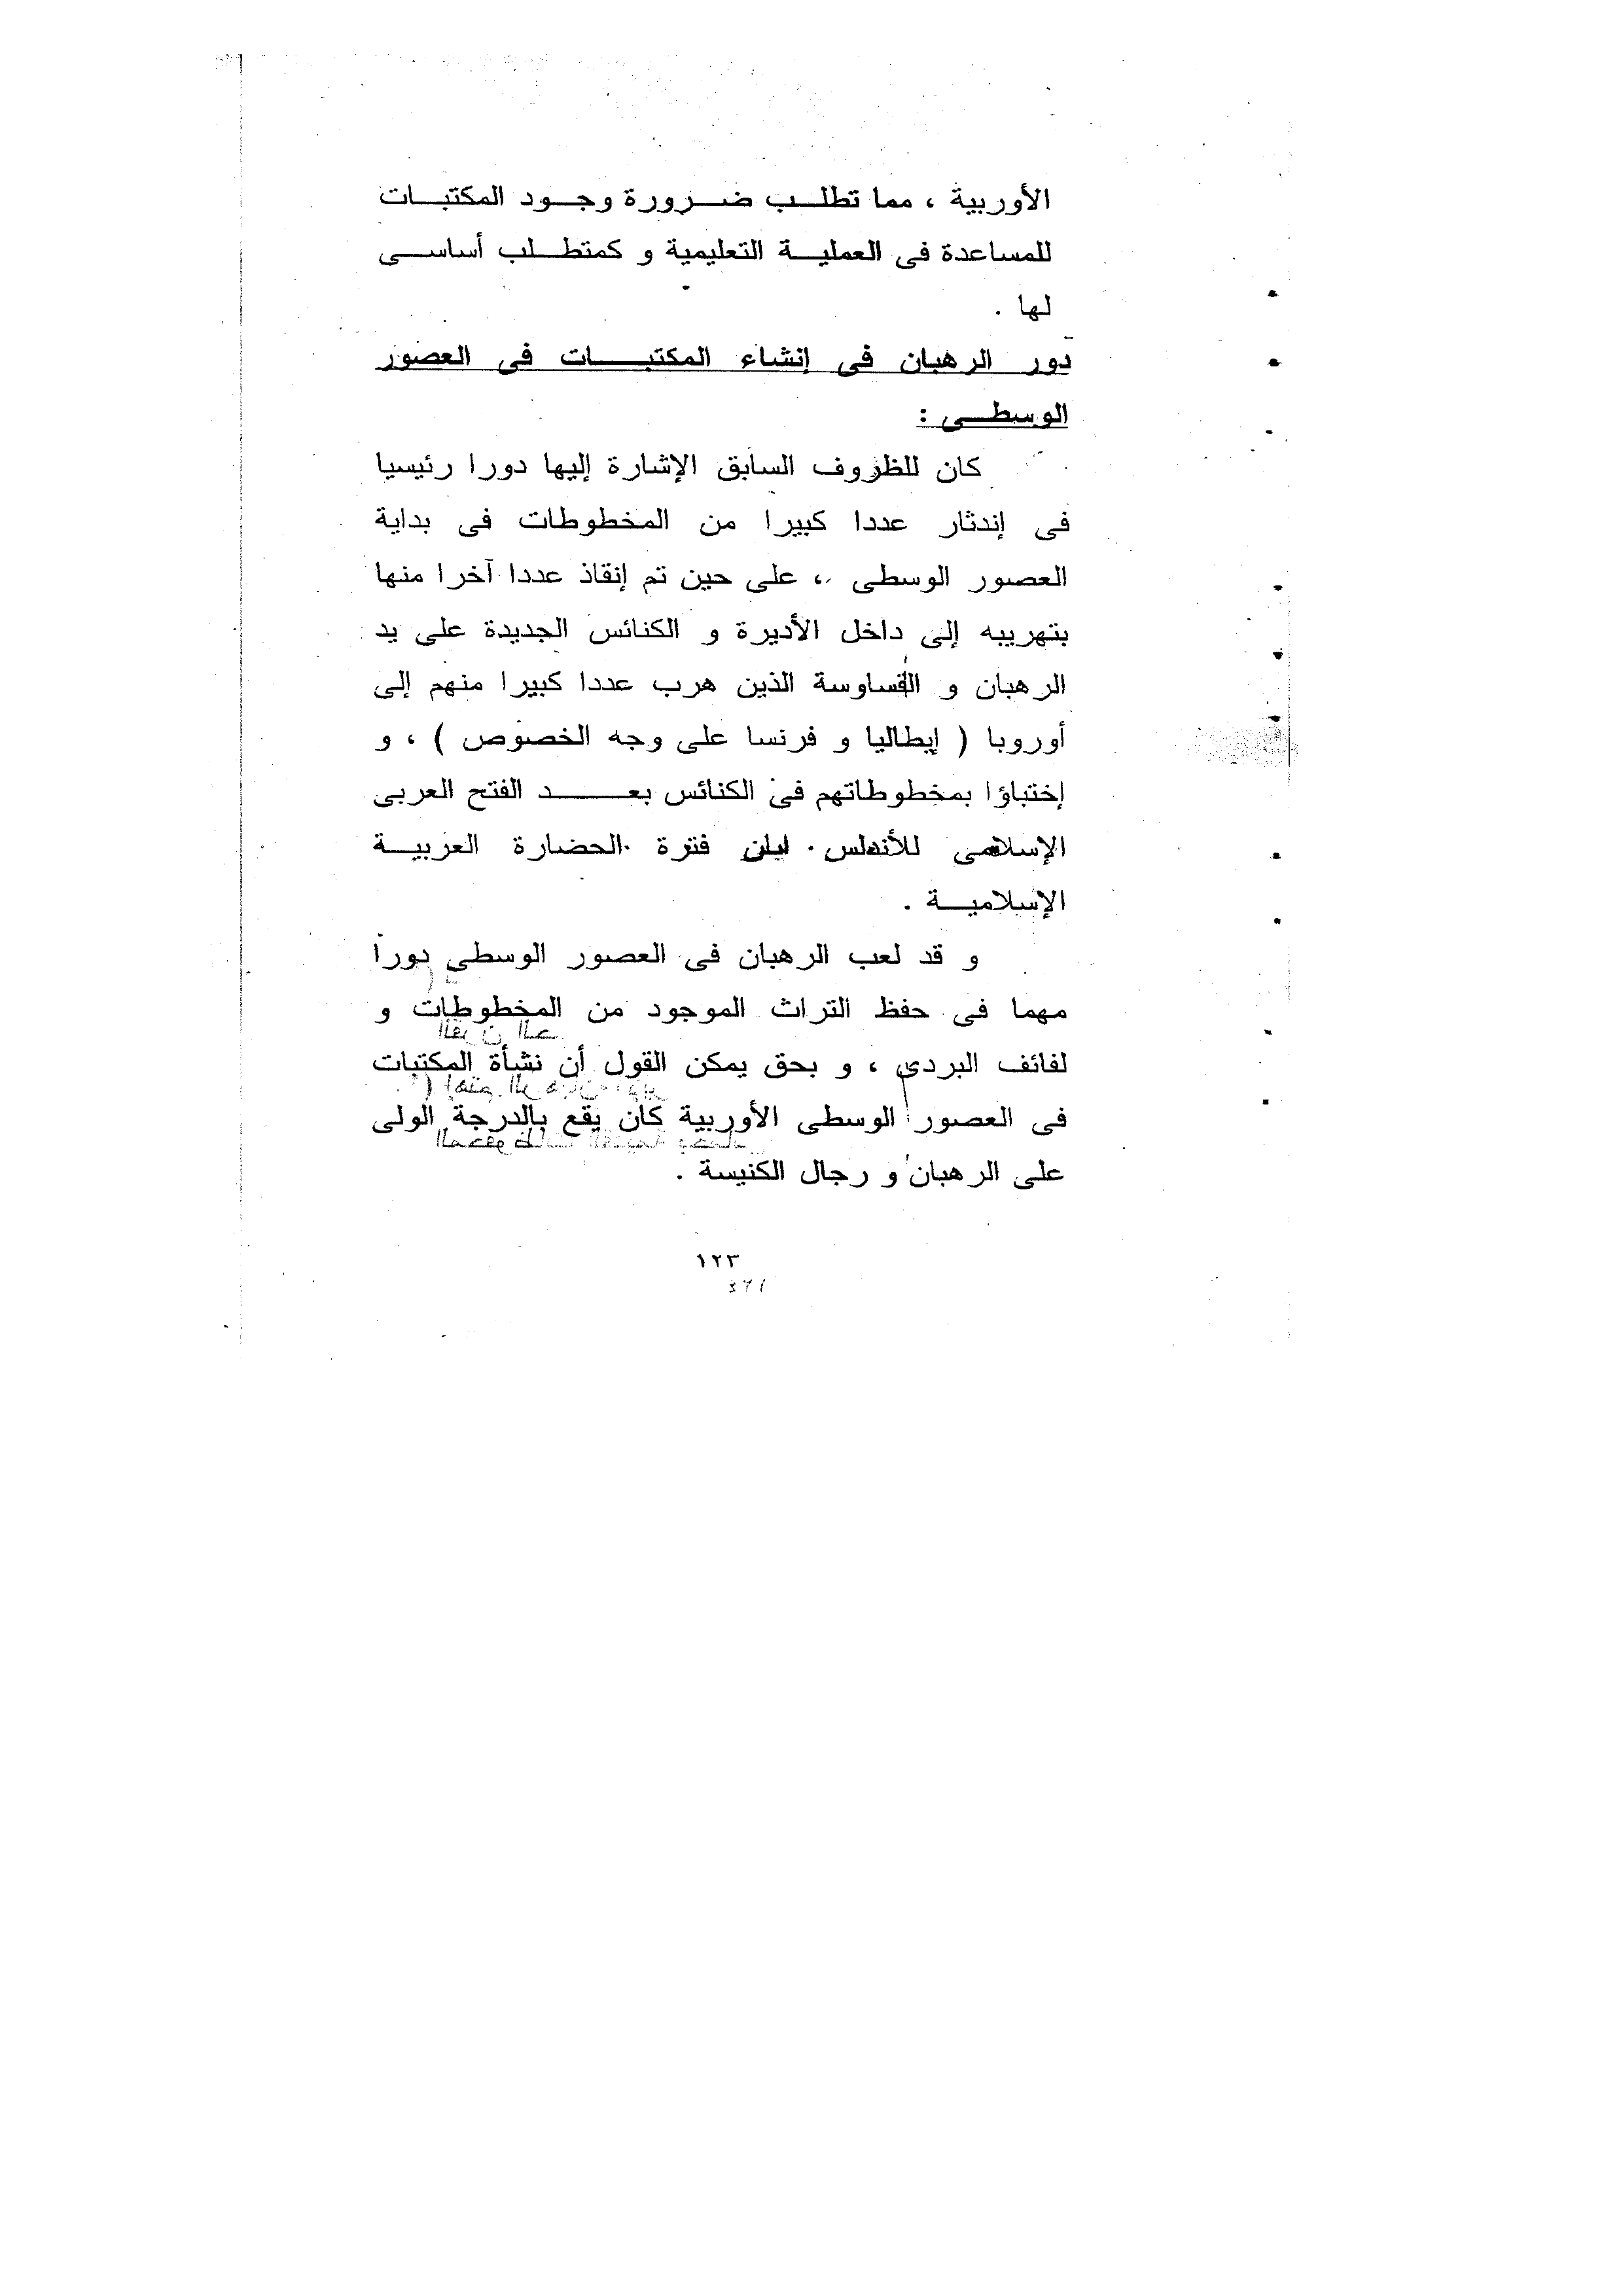 الأوربية ، مما تطلب ضرورة وجود المكتبات
للمساعدة فى العملية التعليمية و كمتطلب أساسى
لها .
دور الرهبان فى إنشاء المكتبات فى العصور
الوسطى :
كان للظروف السابق الإشارة إليها دورا رئيسيا
فى إندثار عددا كبيرا من المخطوطات فى بداية
العصور الوسطى ، على حين تم إنقاذ عددا آخرا منها
بتهريبه إلى داخل الأديرة و الكنائس الجديدة على يد
الرهبان و القساوسة الذين هرب عددا كبيرا منهم إلى
أوروبا ( إيطاليا و فرنسا على وجه الخصوص ) ، و
إختباؤا بمخطوطاتهم فى الكنائس بعد الفتح العربى
الإسلامى للأندلس إبان فترة الحضارة العربية
الإسلامية .
و قد لعب الرهبان فى العصور الوسطى دورا
مهما فى حفظ التراث الموجود من المخطوطات و
لفائف البردى ، و بحق يمكن القول أن نشأة المكتبات
فى العصور الوسطى الأوربية كان يقع بالدرجة الولى
على الرهبان و رجال الكنيسة .
١٢٣